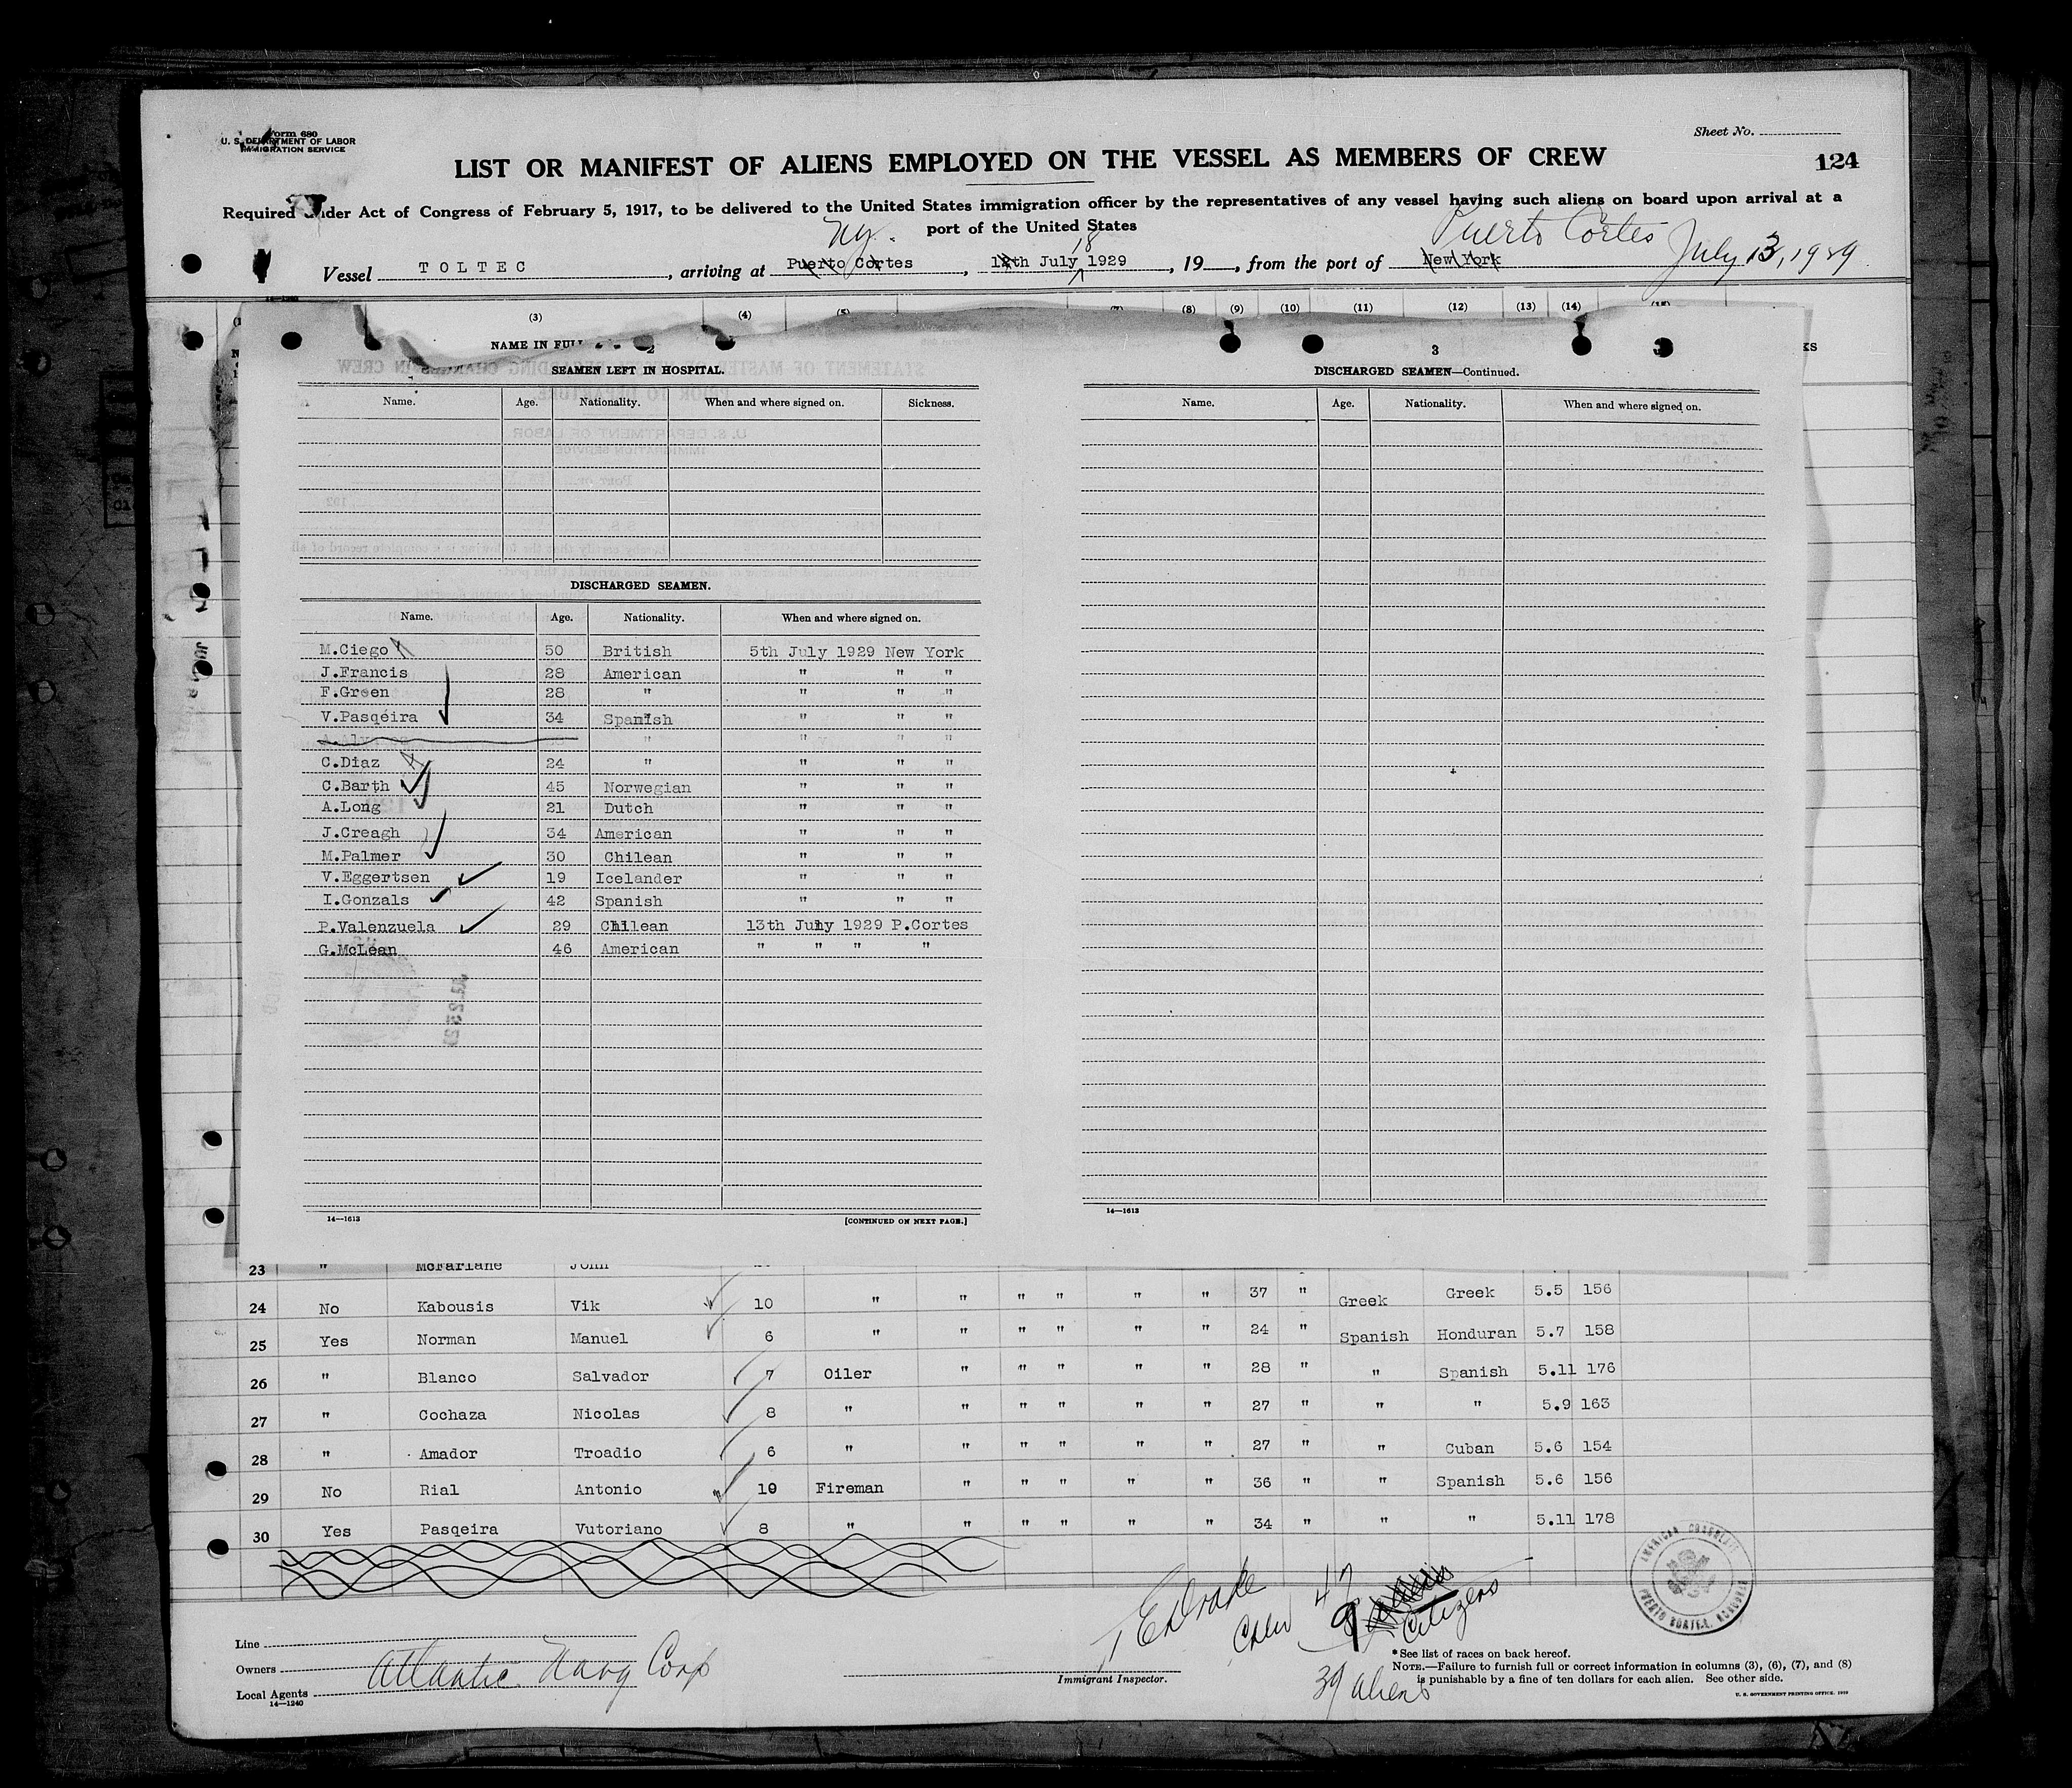 Form 680
U. S. DEPARTMENT OF LABOR
IMMIGRATION SERVICE
Sheet No.
LIST OR MANIFEST OF ALIENS EMPLOYED ON THE VESSEL AS MEMBERS OF CREW
124
Required under Act of Congress of February 5, 1917, to be delivered to the United States immigration officer by the representatives of any vessel having such aliens on board upon arrival at a
port of the United States
NY. 18 Puerto Cortes July 13, 1929
Vessel TOLTEC, arriving at Puerto Cortes, 12th July 1929, 19, from the port of New York
(3) (4) (5) (7) (8) (9) (10) (11) (12) (13) (14) (15)
NAME IN FULL
2
3
KS
SEAMEN LEFT IN HOSPITAL.
Name. Age. Nationality. When and where signed on. Sickness.
DISCHARGED SEAMEN.
Name. Age. Nationality. When and where signed on.
M.Ciego 50 British 5th July 1929 New York
J.Francis 28 American " " "
F.Green 28 " " " "
V.Pasqeira 34 Spanish " " "
" " " "
C.Diaz 24 " " " "
C.Barth 45 Norwegian " " "
A.Long 21 Dutch " " "
J.Creagh 34 American " " "
M.Palmer 30 Chilean " " "
V.Eggertsen 19 Icelander " " "
I.Gonzals 42 Spanish " " "
P.Valenzuela 29 Chilean 13th July 1929 P.Cortes
G.McLean 46 American " " " "
14—1613
[CONTINUED ON NEXT PAGE.]
DISCHARGED SEAMEN—Continued.
Name. Age. Nationality. When and where signed on.
14—1613
23 " McFarlane John
24 No Kabousis Vik 10 " " " " " " 37 " Greek Greek 5.5 156
25 Yes Norman Manuel 6 " " " " " " 24 " Spanish Honduran 5.7 158
26 " Blanco Salvador 7 Oiler " " " " " 28 " " Spanish 5.11 176
27 " Cochaza Nicolas 8 " " " " " " 27 " " " 5.9 163
28 " Amador Troadio 6 " " " " " " 27 " " Cuban 5.6 154
29 No Rial Antonio 10 Fireman " " " " " 36 " " Spanish 5.6 156
30 Yes Pasqeira Vutoriano 8 " " " " " " 34 " " " 5.11 178
AMERICAN CONSULATE
PUERTO CORTES, HONDURAS
T E Drake
Crew 47
9 Citizens
39 Aliens
Line
Owners Atlantic Navg Corp
Local Agents
14—1240
Immigrant Inspector.
* See list of races on back hereof.
NOTE.—Failure to furnish full or correct information in columns (3), (6), (7), and (8)
is punishable by a fine of ten dollars for each alien. See other side.
U. S. GOVERNMENT PRINTING OFFICE